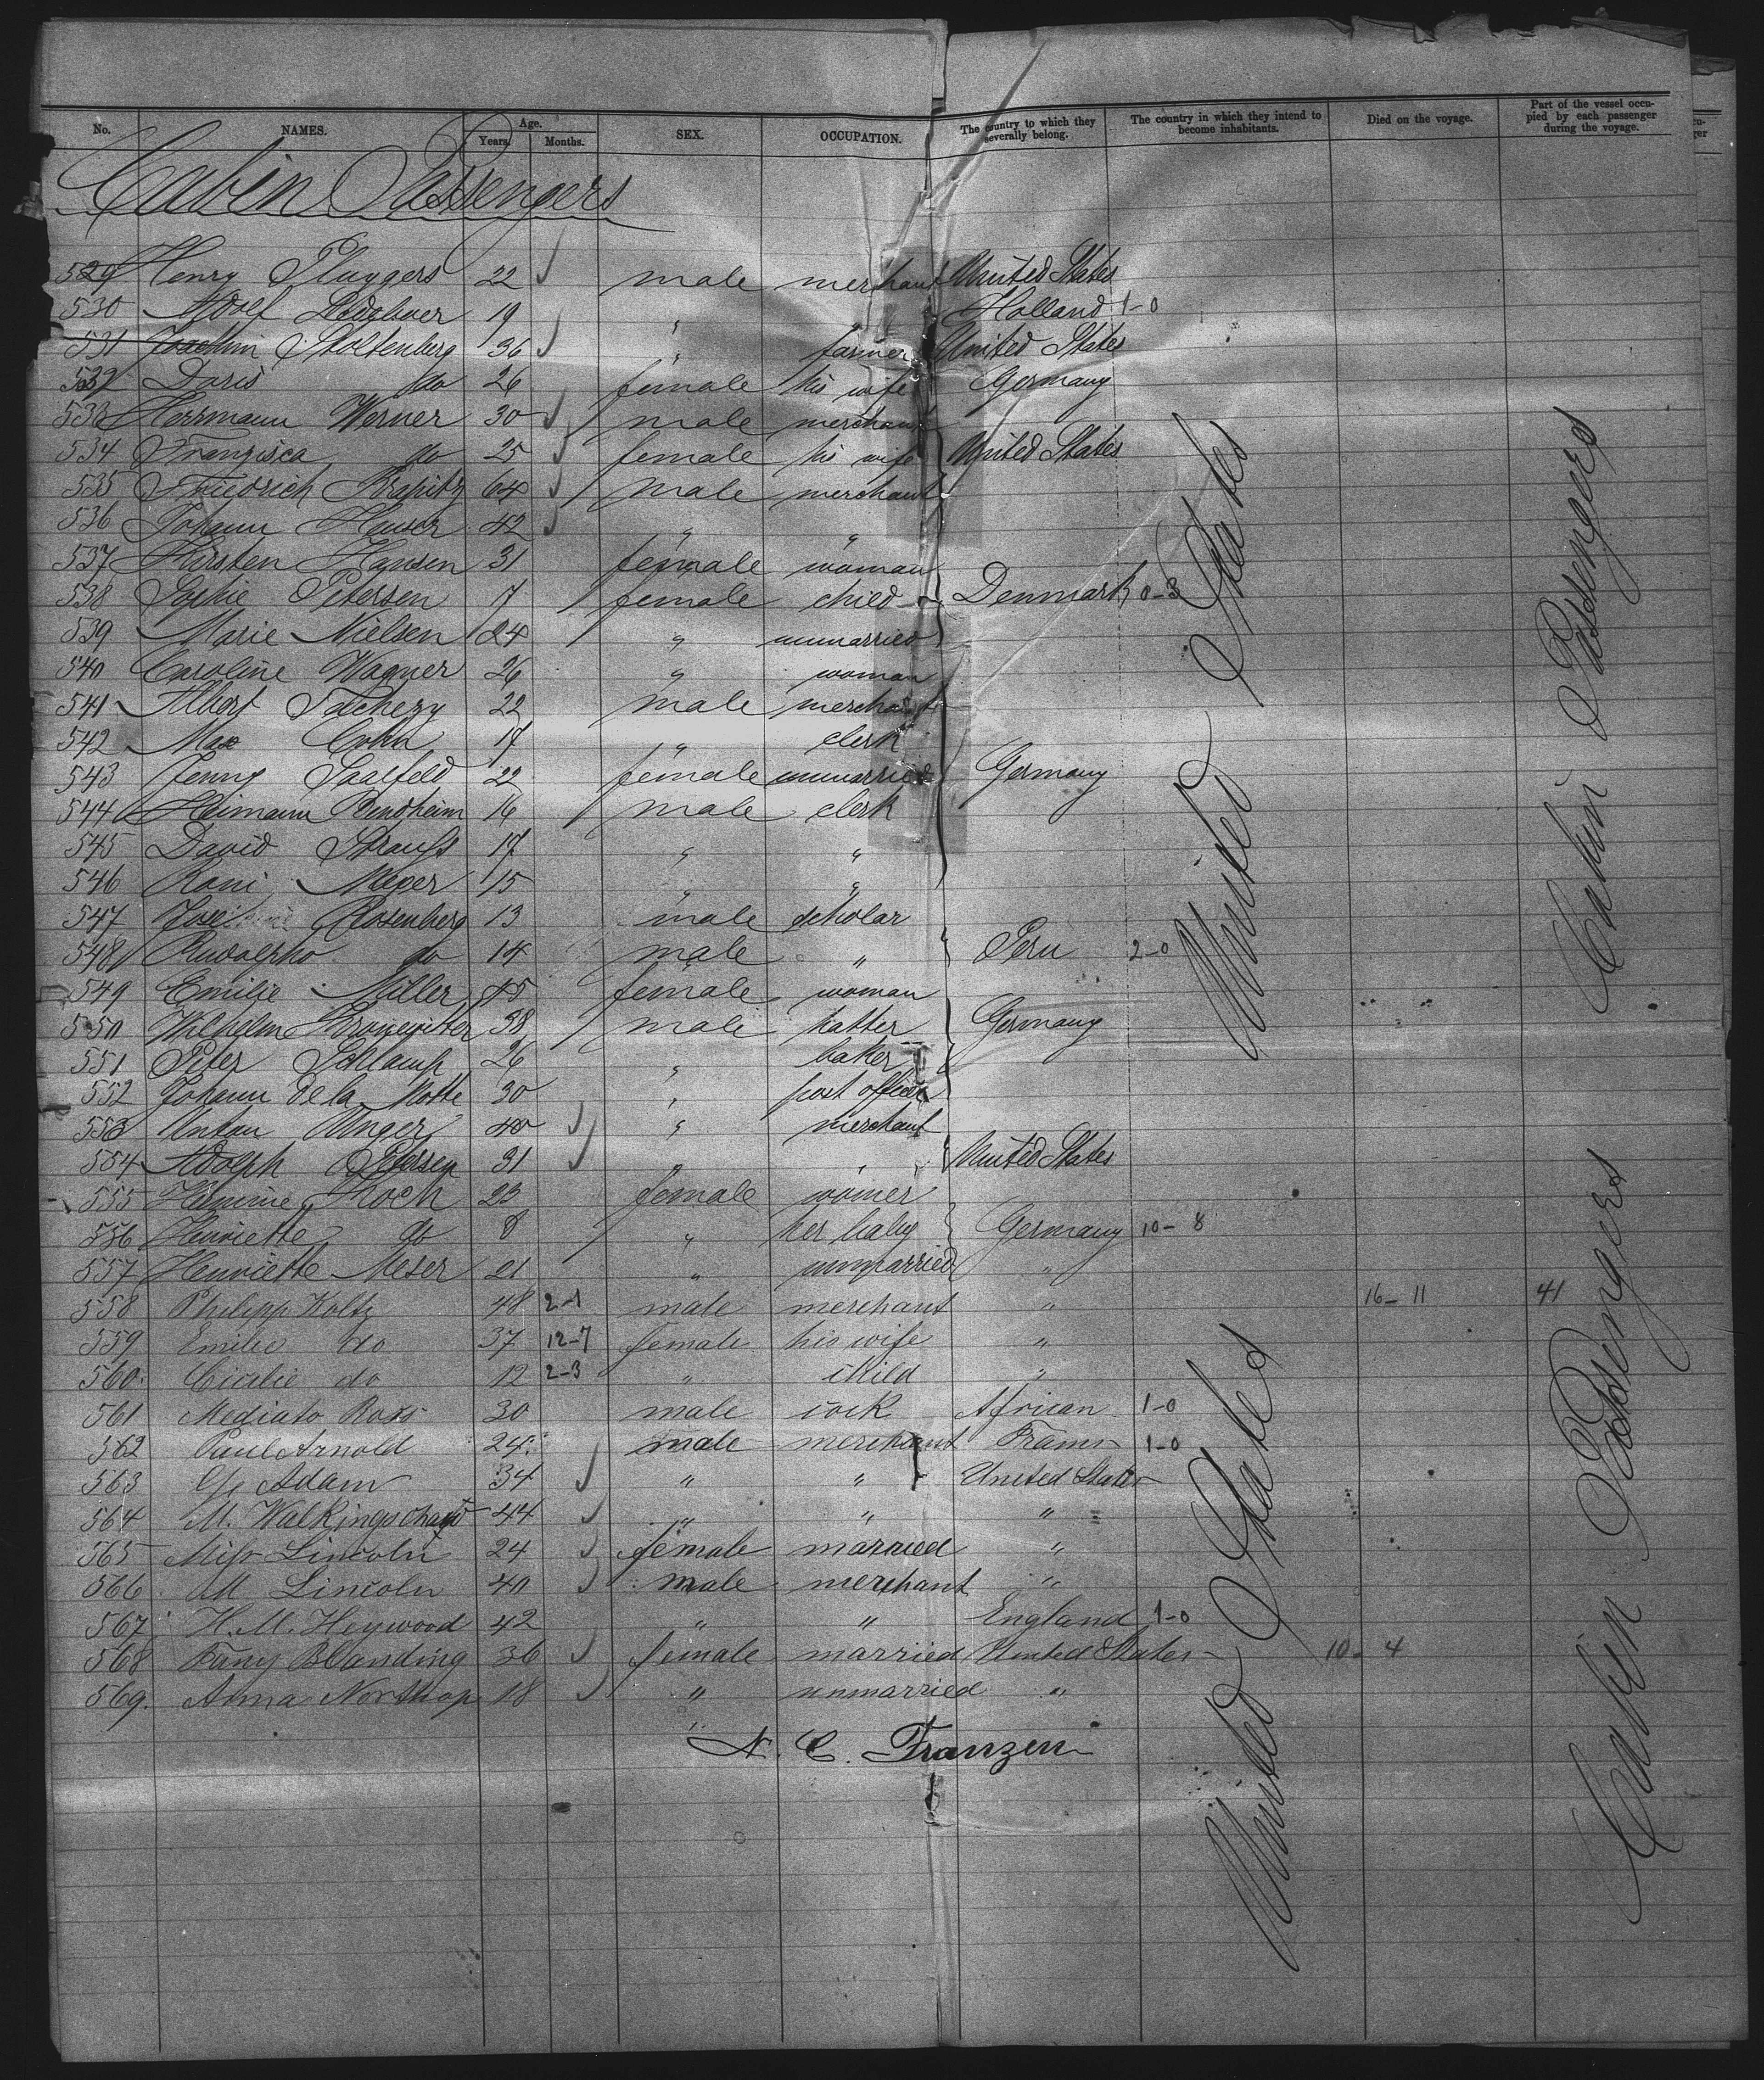 No. NAMES. Age. Years. Months. SEX. OCCUPATION. The country to which they severally belong. The country in which they intend to become inhabitants. Died on the voyage. Part of the vessel occupied by each passenger during the voyage.
Cabin Passengers
529 Henry Pluygers 22 male merchant United States
530 Adolf 19 " Holland 1-0
531 Joachim Stoltenberg 36 " farmer United States
532 Doris do 26 female his wife Germany
533 Herrmann Werner 30 male merchant
534 Franzisca do 25 female his wife United States
535 Friedrich 64 male merchant
536 Johann Hauser 42 " "
537 Kirsten Hansen 31 female woman
538 Sophie Petersen 7 female child Denmark 0-3
539 Marie Nielsen 24 " unmarried
540 Caroline Wagner 26 " woman
541 Albert 22 male merchant
542 Max Cohn 17 " clerk
543 Jenny Saalfeld 22 female unmarried Germany
544 Heimann Bendheim 16 male clerk
545 David Strauss 17 " "
546 Roni Meyer 15 " "
547 Rosenberg 13 male scholar
548 Rudolpho do 14 male " Peru 2-0
549 Emilie Miller female woman
550 Wilhelm 38 male hatter Germany
551 Peter Schlamp 26 " baker
552 Johann de la Motte 30 " post officer
553 Anton Unger 40 " merchant
554 Adolph 31 " " United States
555 Hermine Koch 23 female
556 Henriette do 8 " her baby Germany 10-8
557 Henriette Meser 21 " unmarried "
558 Philipp Koltz 48 2-1 male merchant " 16-11 41
559 Emilie do 37 12-7 female his wife "
560. Cicilie do 12 2-3 " child "
561 Mediato Ross 30 male cock African 1-0
562 Paul Arnold 24 male merchant 1-0
563 Adam 34 " " United States
564 M. 44 " " "
565 Miss Lincoln 24 female married "
566 M Lincoln 40 male merchant "
567 H. M. Heywood 42 " " England 1-0
568 Fany Blanding 36 female married United States 10-4
569. Anna Northop 18 " unmarried "
N. C. Franzen
United States
Cabin Passengers
United States
Cabin Passengers